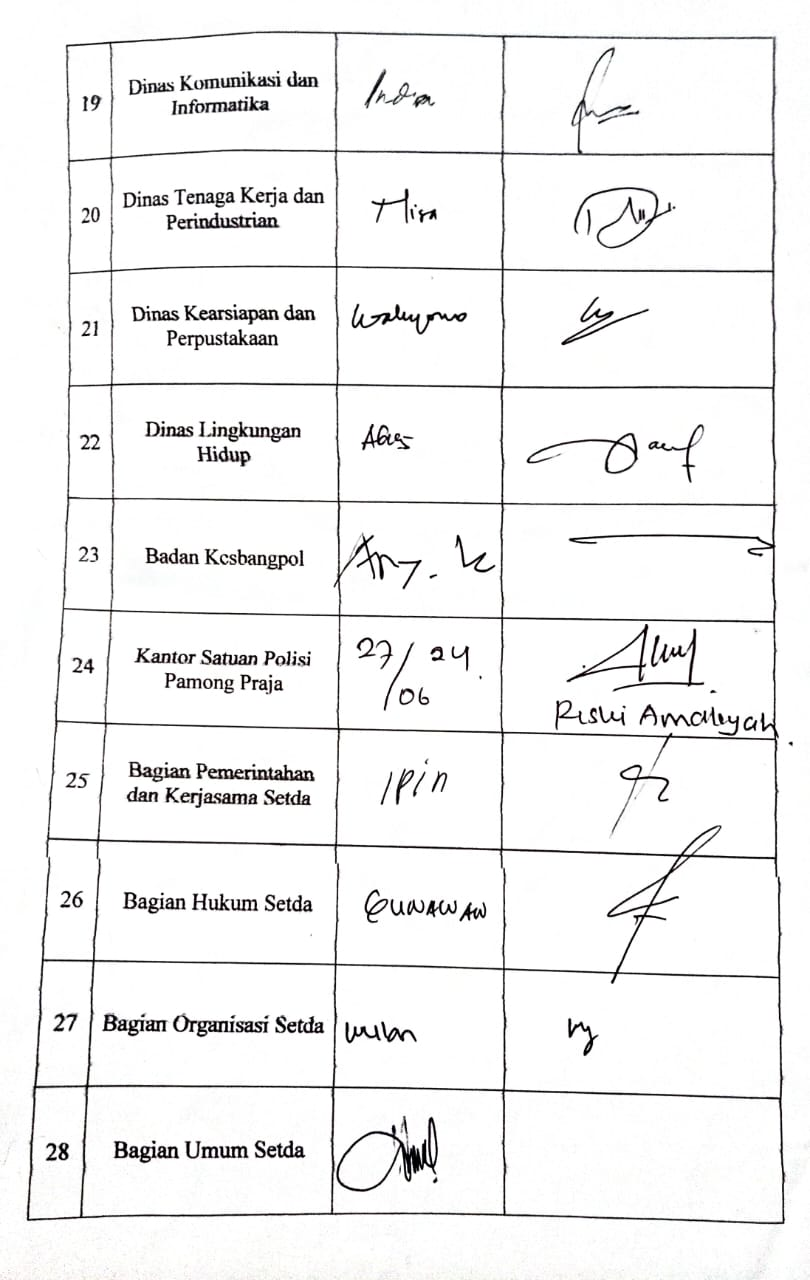 19
Dinas Komunikasi dan
Informatika
Indra
20
Dinas Tenaga Kerja dan
Perindustrian
21
Dinas Kearsiapan dan
Perpustakaan
Waluyono
22
Dinas Lingkungan
Hidup
Agus
23
Badan Kesbangpol
Any. K
24
Kantor Satuan Polisi
Pamong Praja
27/06 24.
Riski Amaliyah
25
Bagian Pemerintahan
dan Kerjasama Setda
IPIN
26
Bagian Hukum Setda
GUNAWAN
27
Bagian Organisasi Setda
wulan
28
Bagian Umum Setda